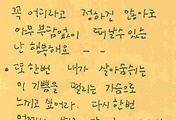 꼭 어디라고 정하진 않아도
아무 부담없이 떠날수 있는
난 행복해요 - -
• 또 한번 내가 살아숨쉬는
이 기쁨을 떨리는 가슴으로
느끼고 싶어라. 다시 한번